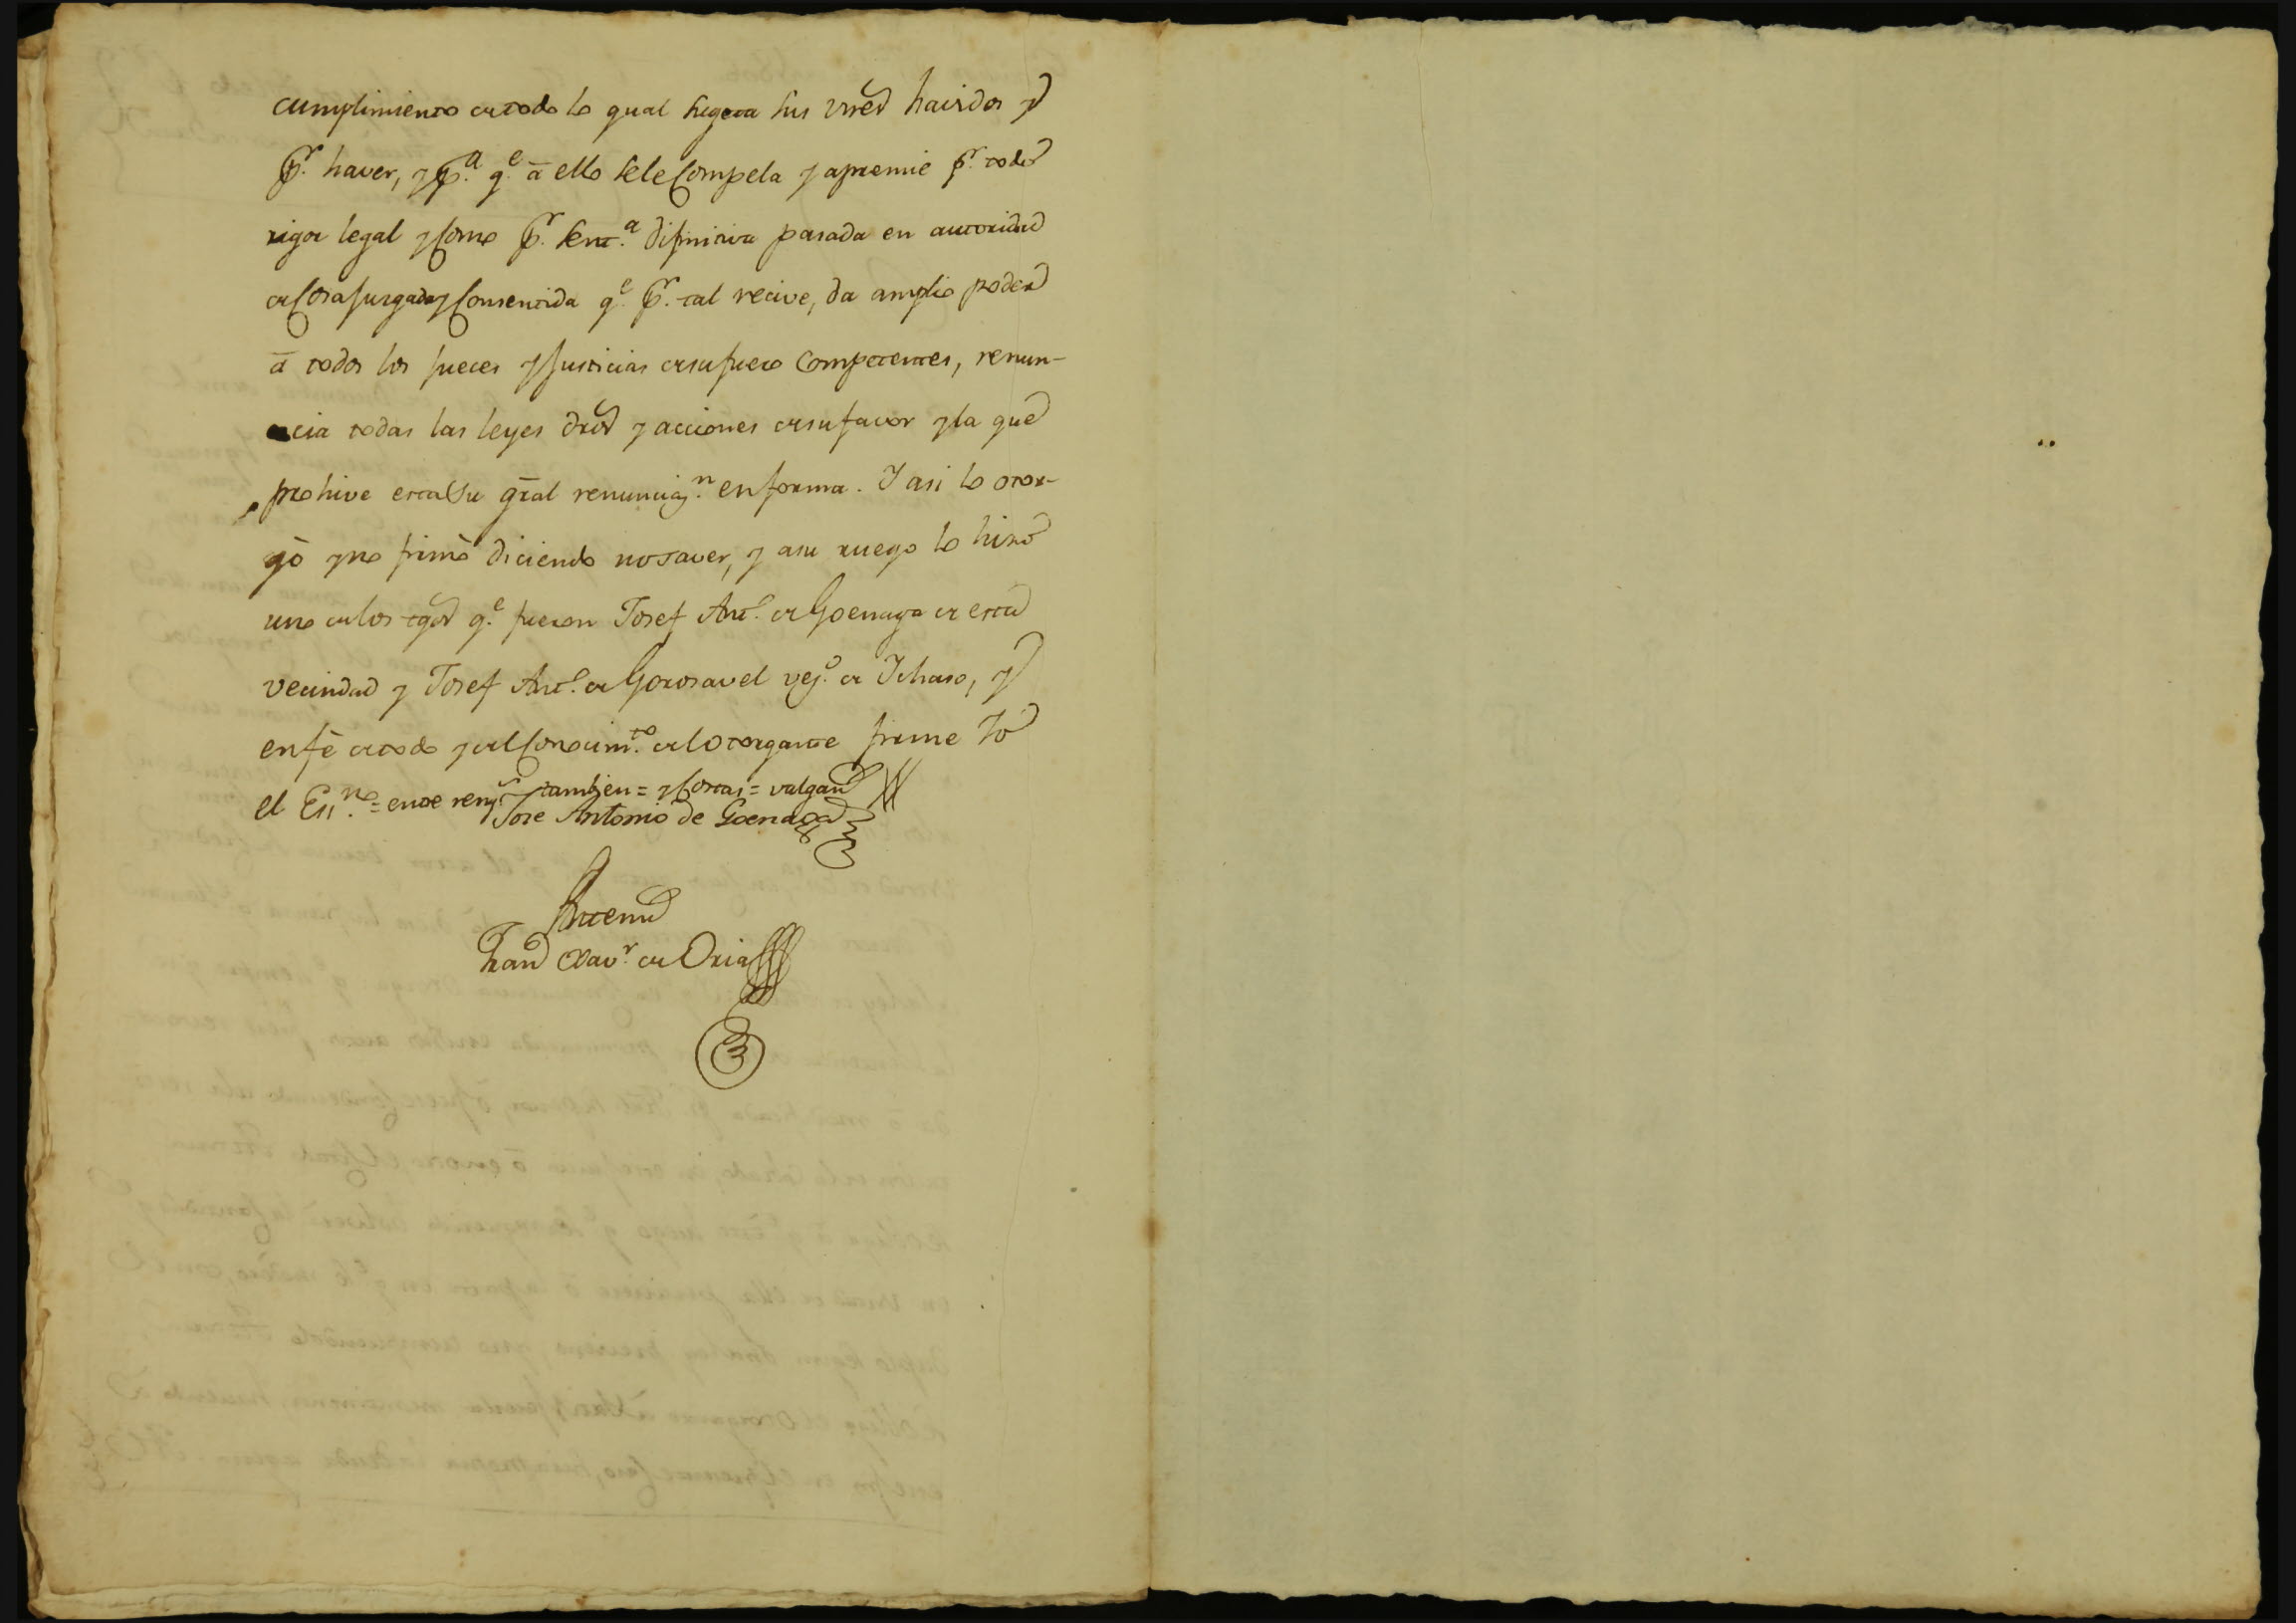 cumplimiento de todo lo qual sugeta sus vnes havidos y
pr. haver, y pa. qe. â ello se le Compela y apremie pr. todo
rigor legal y Como pr. senta. difinitiva pasada en autoridad
de Cosa jurgada y Consentida qe. pr. tal recive, da amplio poder
â todos los jueces y Justicias de su fuero Competentes, renun-
cia todas las leyes dros y acciones de su favor y la que
prohive esta su gral renunciazn. en forma. Y asi lo otor-
gò y no firmò diciendo no saver, y a su ruego lo hizo
uno de los tgos qe. fueron Josef Anto. de Goenaga de esta
vecindad y Josef Anto. de Gorosavel vezo. de Ichaso, y
en fè de todo y del Conocimto. del otorgante firme Yo
el Essno. = entre rens. tambien = y Costas = valgan
Jose Antonio de Goenaga
Antemi
Franco Xavr. de Oria